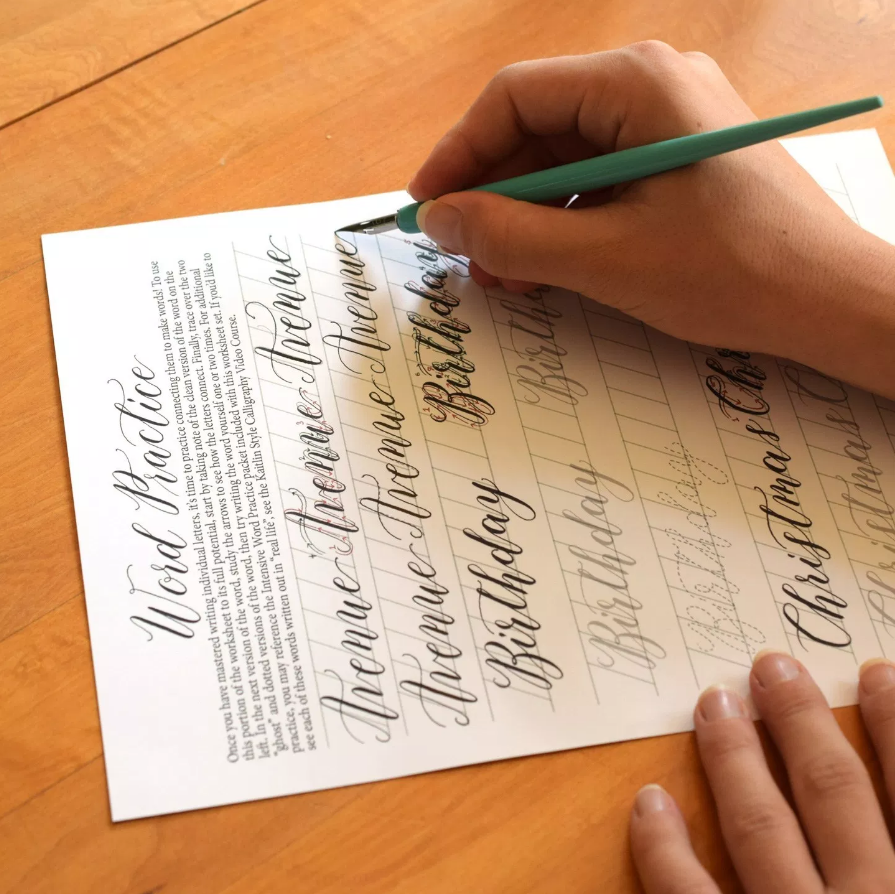 Word Practice
Once you have mastered writing individual letters, it's time to practice connecting them to make words! To use
this portion of the worksheet to its full potential, start by taking note of the clean version of the word on the
left. In the next version of the word, study the arrows to see how the letters connect. Finally, trace over the two
"ghost" and dotted versions of the word, then try writing the word yourself one or two times. For additional
practice, you may reference the Intensive Word Practice packet included with this worksheet set. If you'd like to
see each of these words written out in "real life", see the Kaitlin Style Calligraphy Video Course.
Avenue Avenue Avenue
Avenue Avenue Avenue
Birthday Birthday
Birthday Birth
Birthday
Christmas Chr
Christmas C